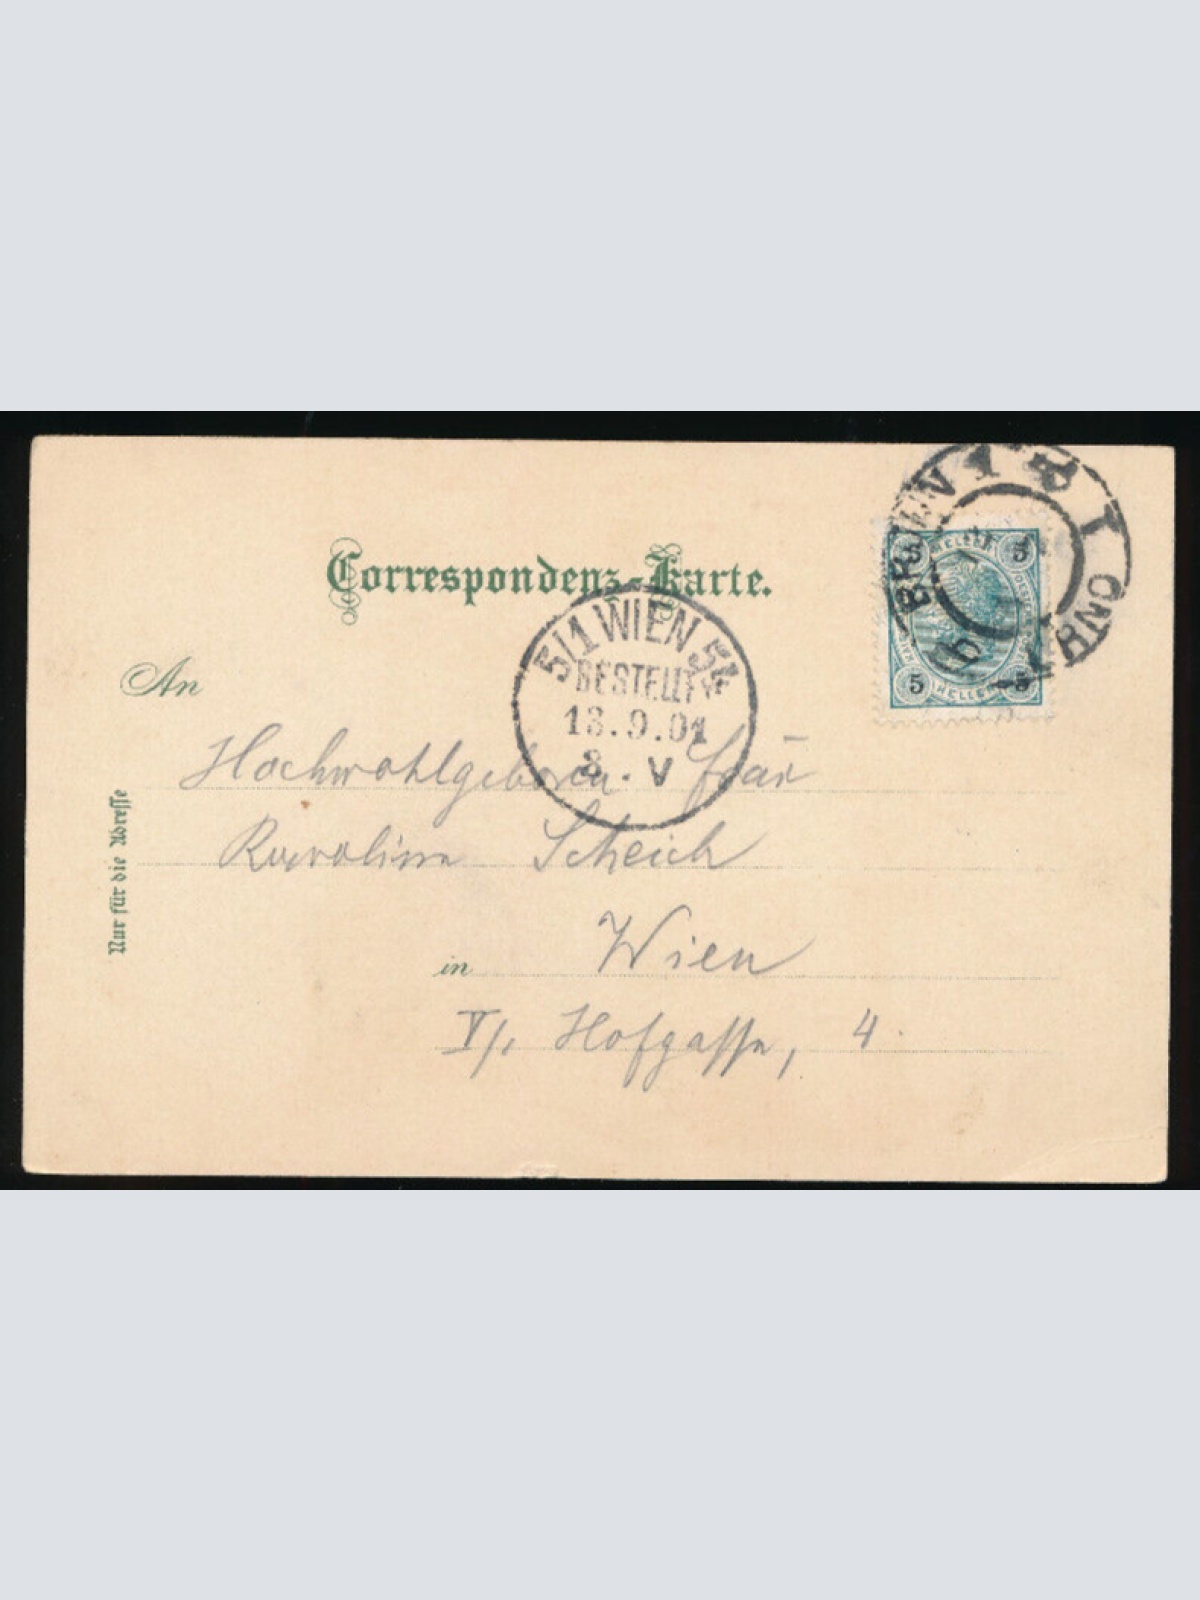 Correspondenz-Karte.
BRÜNN 1
BRNO 1
5 HELLER 5
5 HELLER 5
5/1 WIEN 54
BESTELLT
13.9.01
8. V
An
Hochwohlgeboren Frau
Karolina Scheich
in Wien
V/1 Hofgasse, 4.
Nur für die Adresse